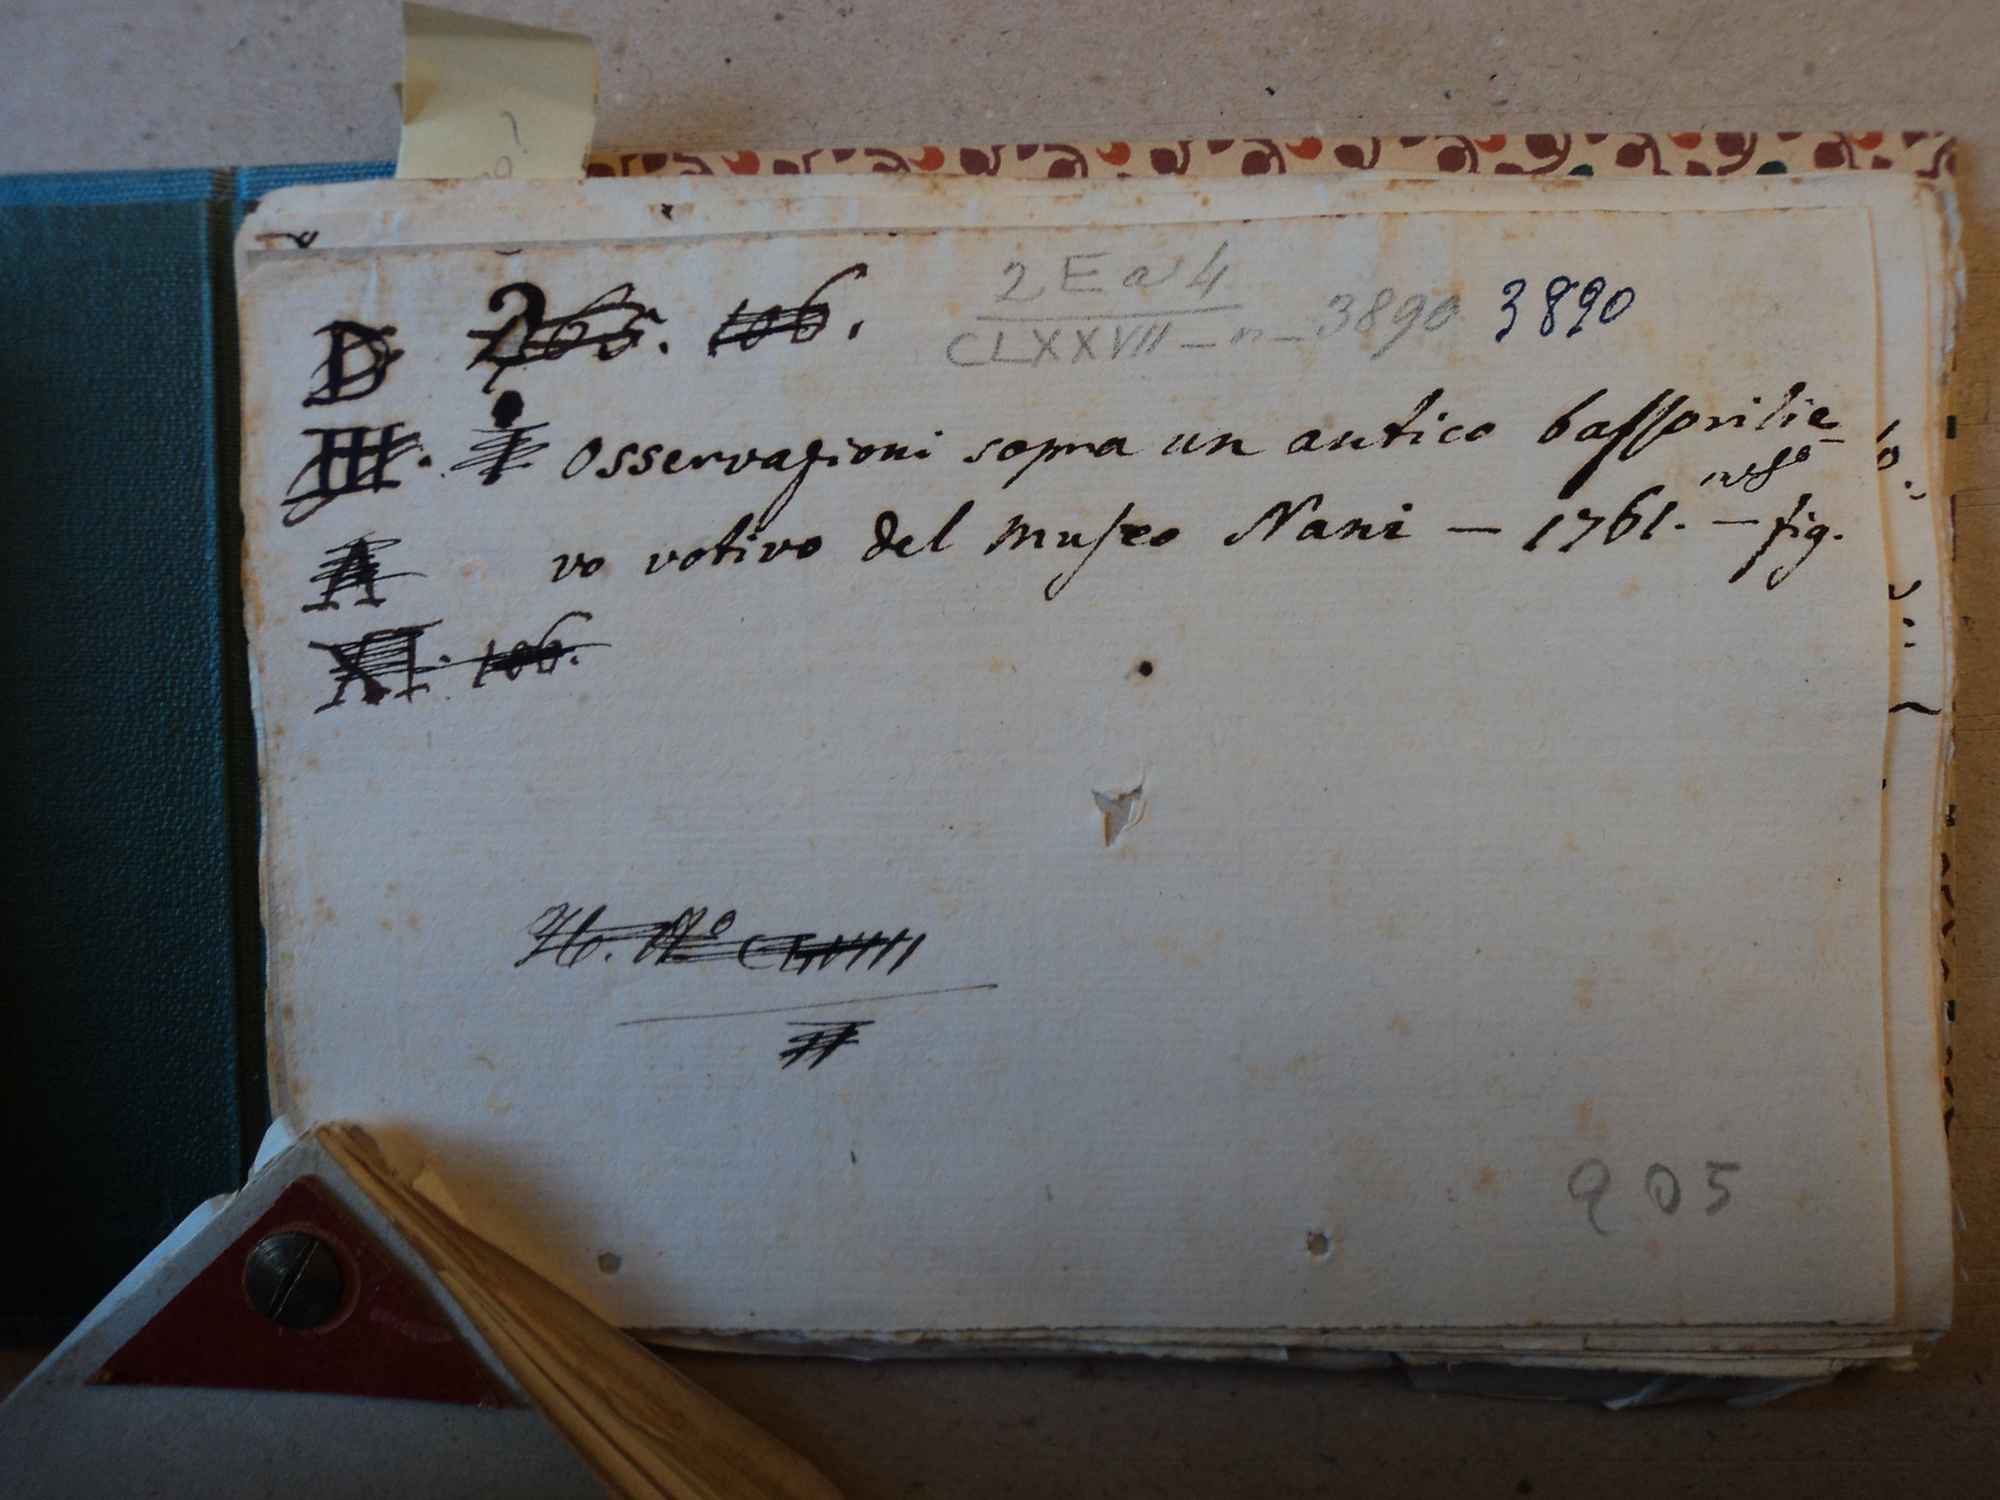 2 E a 4
D 266. 106. CLXXVII - n - 3890 3890
III. Osservazioni sopra un antico bassorilie-
A vo votivo del museo Nani — 1761. — fig.
XI. 106.
No CLVIII
905